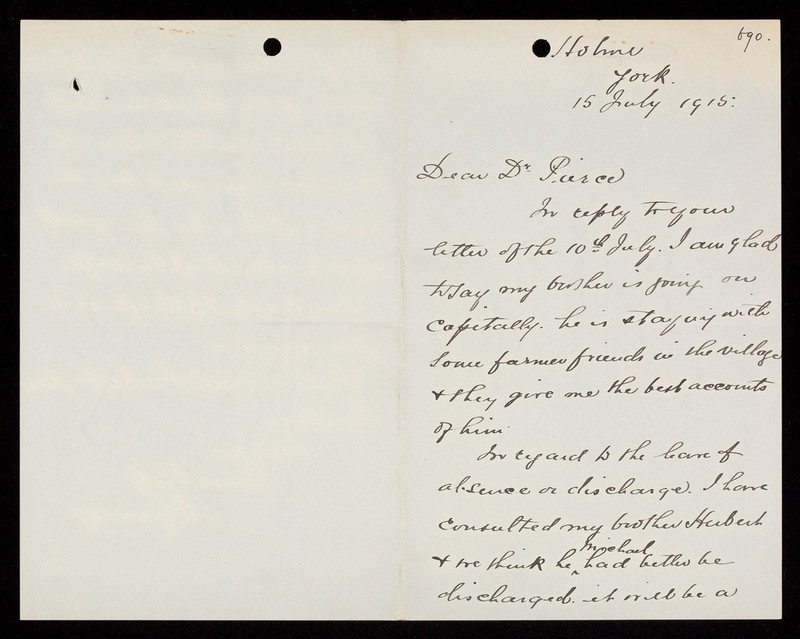 690.
Holme
York.
15 July 1915.
Dear Dr. Pierce
In reply to your
letter of the 10th July. I am glad
to say my brother is going on
capitally. he is staying with
some farmer friends in the village
& they give me the best accounts
of him.
In regard to the leave of
absence or discharge. I have
consulted my brother Herbert
& we think he Michael had better be
discharged. it will be a